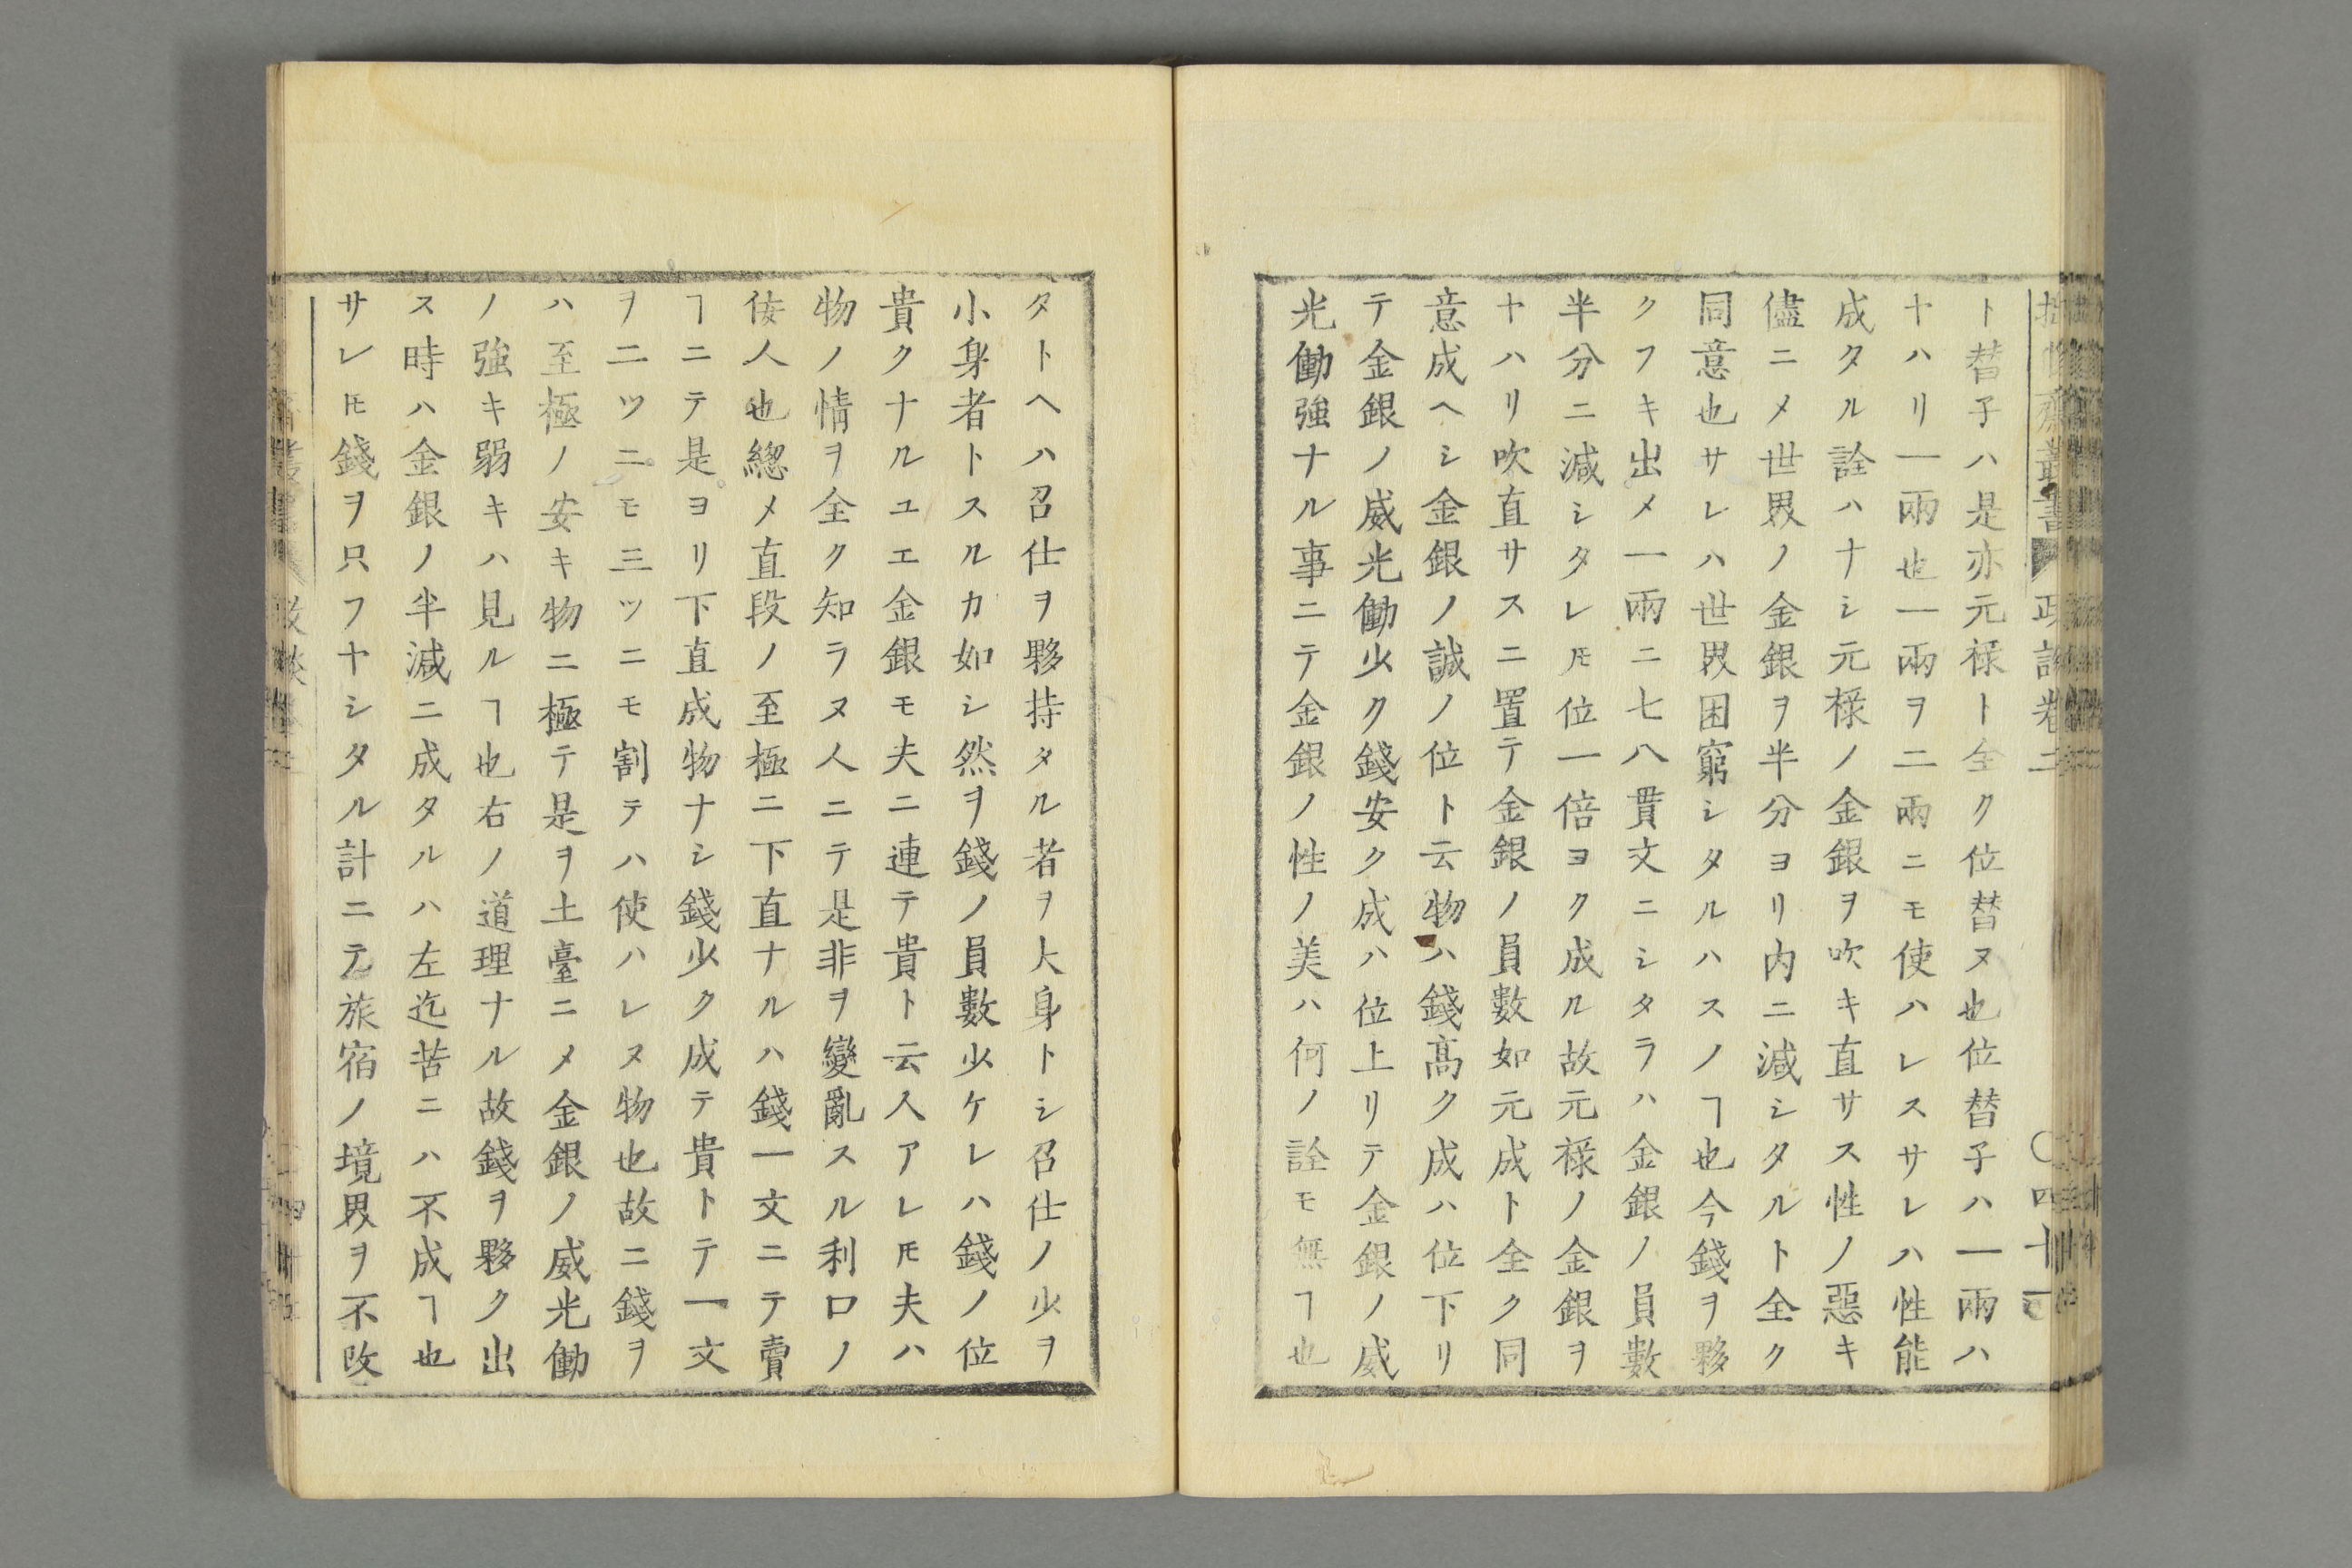 齋叢書 政談卷二 〇四十一
ト替子ハ是亦元禄ト全ク位替ヌ也位替子ハ一兩ハ
ヤハリ一兩也一兩ヲ二兩ニモ使ハレスサレハ性能
成タル詮ハナシ元禄ノ金銀ヲ吹キ直サス性ノ惡キ
儘ニメ世界ノ金銀ヲ半分ヨリ内ニ減シタルト全ク
同意也サレハ世界困窮シタルハスノヿ也今錢ヲ夥
クフキ出メ一兩ニ七八貫文ニシタラハ金銀ノ員數
半分ニ減シタレ𪜈位一倍ヨク成ル故元禄ノ金銀ヲ
ヤハリ吹直サスニ置テ金銀ノ員數如元成ト全ク同
意成ヘシ金銀ノ誠ノ位ト云物ハ錢髙ク成ハ位下リ
テ金銀ノ威光働少ク錢安ク成ハ位上リテ金銀ノ威
光働強ナル事ニテ金銀ノ性ノ美ハ何ノ詮モ無ヿ也
タトヘハ召仕ヲ夥持タル者ヲ大身トシ召仕ノ少ヲ
小身者トスルカ如シ然ヲ錢ノ員數少ケレハ錢ノ位
貴クナルユエ金銀モ夫ニ連テ貴ト云人アレ𪜈夫ハ
物ノ情ヲ全ク知ラヌ人ニテ是非ヲ變亂スル利口ノ
佞人也緫メ直段ノ至極ニ下直ナルハ錢一文ニテ賣
ヿニテ是ヨリ下直成物ナシ錢少ク成テ貴トテ一文
ヲ二ツニモ三ツニモ割テハ使ハレヌ物也故ニ錢ヲ
ハ至極ノ安キ物ニ極テ是ヲ土臺ニメ金銀ノ威光働
ノ強キ弱キハ見ルヿ也右ノ道理ナル故錢ヲ夥ク出
ス時ハ金銀ノ半減ニ成タルハ左迄苦ニハ不成ヿ也
サレ𪜈錢ヲ只フヤシタル計ニテ旅宿ノ境界ヲ不改